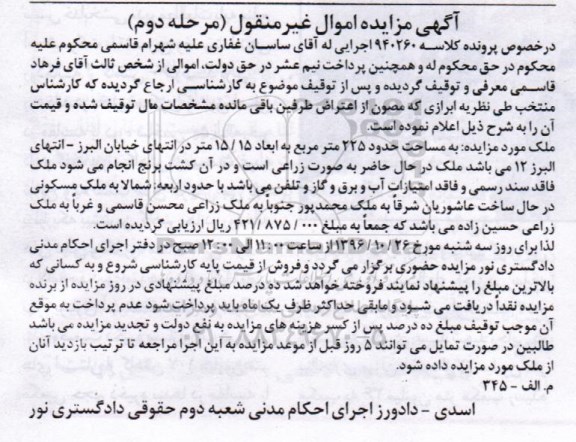 آگهی مزایده اموال غیر منقول (مرحله دوم)
درخصوص پرونده کلاسه ۹۴۰۲۶۰ اجرایی له آقای ساسان غفاری علیه شهرام قاسمی محکوم علیه
محکوم در حق محکوم له و همچنین پرداخت نیم عشر در حق دولت، اموالی از شخص ثالث آقای فرهاد
قاسمی معرفی و توقیف گردیده و پس از توقیف موضوع به کارشناسی ارجاع گردیده که کارشناس
منتخب طی نظریه ابرازی که مصون از اعتراض طرفین باقی مانده مشخصات مال توقیف شده و قیمت
آن را به شرح ذیل اعلام نموده است.
ملک مورد مزایده: به مساحت حدود ۲۲۵ متر مربع به ابعاد ۱۵/۱۵ متر در انتهای خیابان البرز - انتهای
البرز ۱۲ می باشد ملک در حال حاضر به صورت زراعی است و در آن کشت برنج انجام می شود ملک
فاقد سند رسمی و فاقد امتیازات آب و برق و گاز و تلفن می باشد با حدود اربعه: شمالا به ملک مسکونی
در حال ساخت عاشوریان شرقاً به ملک محمدپور جنوباً به ملک زراعی محسن قاسمی و غرباً به ملک
زراعی حسین زاده می باشد که جمعاً به مبلغ ۴۲۱/۸۷۵/۰۰۰ ریال ارزیابی گردیده است.
لذا برای روز سه شنبه مورخ ۱۳۹۶/۱۰/۲۶ از ساعت ۱۱:۰۰ الی ۱۲:۰۰ صبح در دفتر اجرای احکام مدنی
دادگستری نور مزایده حضوری برگزار می گردد و فروش از قیمت پایه کارشناسی شروع و به کسانی که
بالاترین مبلغ را پیشنهاد نمایند فروخته خواهد شد ده درصد مبلغ پیشنهادی در روز مزایده از برنده
مزایده نقداً دریافت می شود و مابقی حداکثر ظرف یک ماه باید پرداخت شود عدم پرداخت به موقع
آن موجب توقیف مبلغ ده درصد پس از کسر هزینه های مزایده به نفع دولت و تجدید مزایده می باشد
طالبین در صورت تمایل می توانند ۵ روز قبل از موعد مزایده به این اجرا مراجعه تا ترتیب بازدید آنان
از ملک مورد مزایده داده شود.
م. الف - ۳۴۵
اسدی - دادورز اجرای احکام مدنی شعبه دوم حقوقی دادگستری نور